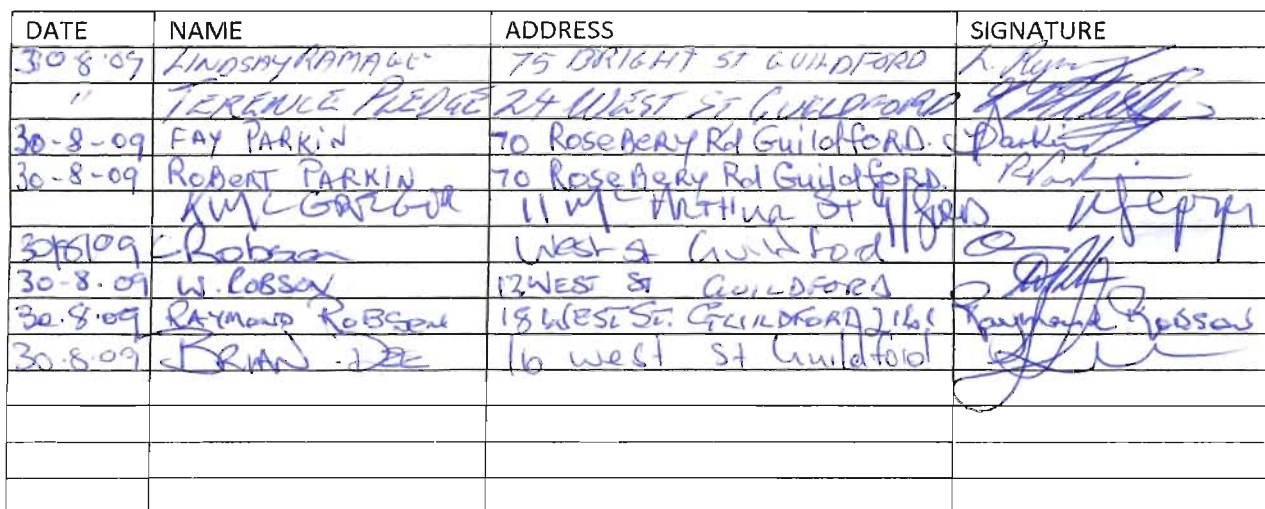 DATE NAME ADDRESS SIGNATURE
30-8-09 LINDSAY RAMAGE 75 BRIGHT ST GUILDFORD
" TERENCE PLEDGE 24 WEST ST GUILDFORD
30-8-09 FAY PARKIN 70 Rosebery Rd Guildford. Parkin
30-8-09 ROBERT PARKIN 70 Rosebery Rd Guildford.
K McGREGOR 11 McARTHUR ST
30/8/09 Robson West St Guildford
30-8-09 W. ROBSON 12 WEST St GUILDFORD
30.8.09 RAYMOND ROBSON 18 WEST ST. GUILDFORD 2161 Raymond Robson
30.8.09 BRIAN DEE 16 West St Guildford